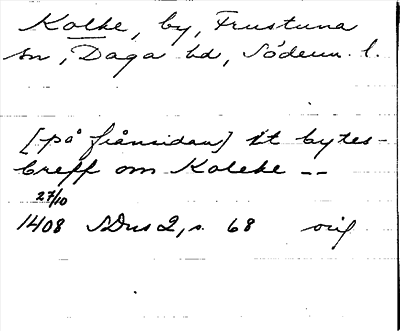 Kolke, by, Frustuna
sn, Daga hd, Söderm. l.
[på frånsidan] it bytes-
breff om Koleke --
27/10
1408 SDns 2, s. 68 orig